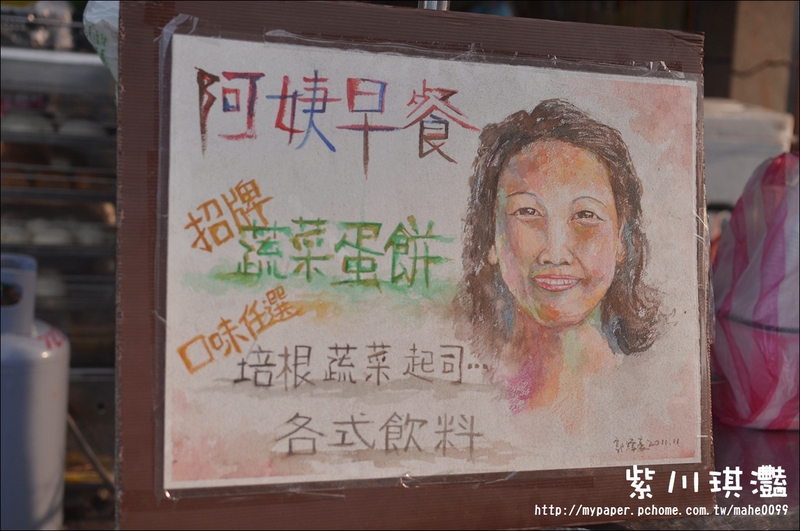 阿姨早餐
招牌
蔬菜蛋餅
口味任選
培根蔬菜起司…
各式飲料
2011.11
紫川琪灩
http://mypaper.pchome.com.tw/mahe0099